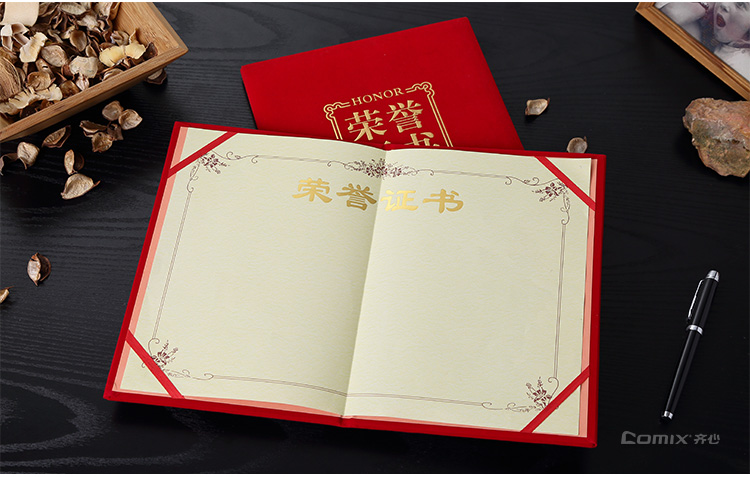 HONOR
荣誉
证书
荣誉证书
Comix 齐心